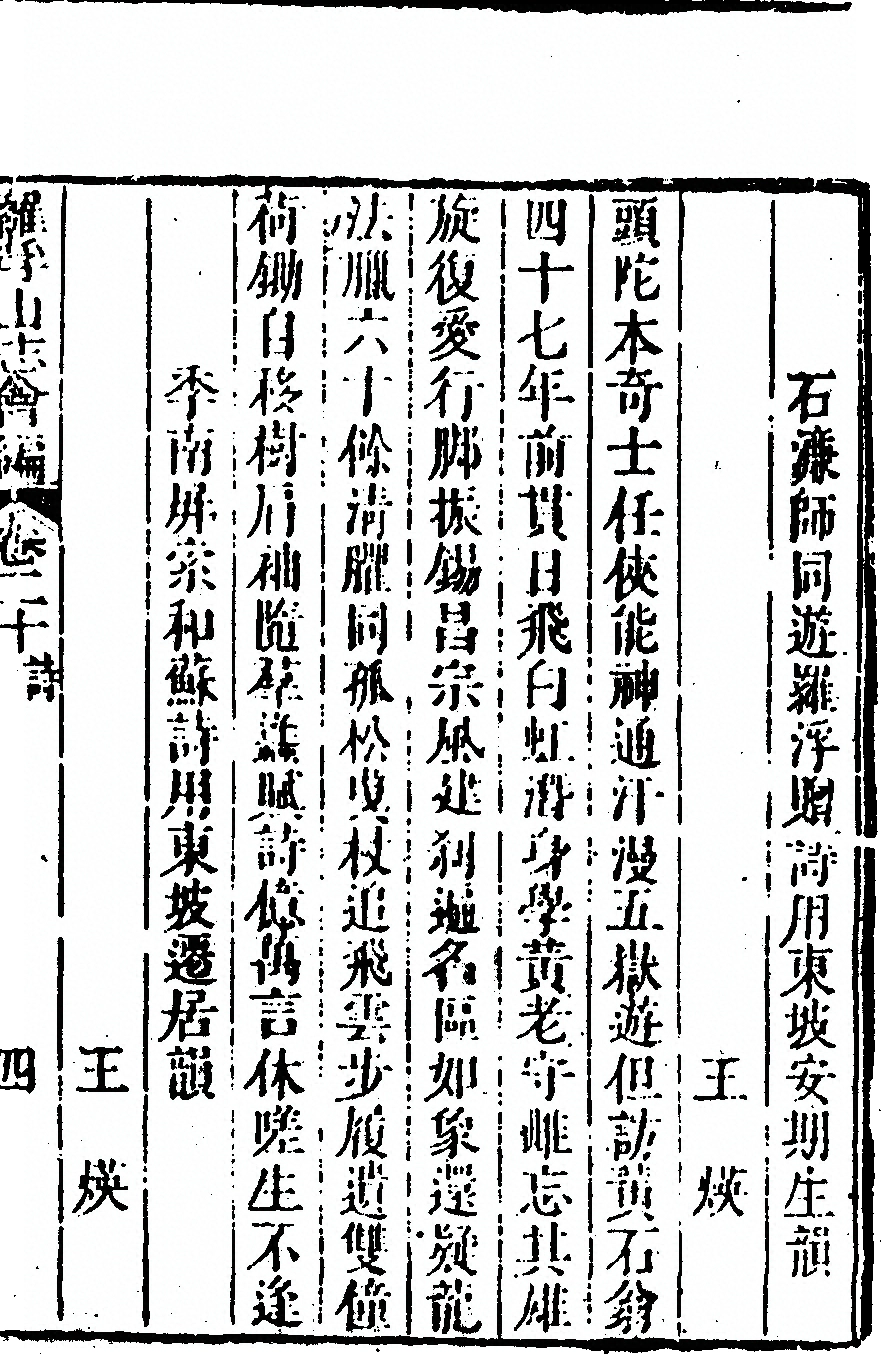 石濂師同遊羅浮贈詩用東坡安期生韻
王煐
頭陀本奇士任俠能神通汗漫五嶽遊但訪黃石翁
四十七年前貫日飛白虹潛身學黃老守雌忘其雄
旋復愛行脚振錫昌宗風建刹遍名區如象還疑龍
法臘六十餘清臞同孤松曳杖追飛雲步履遺雙僮
荷鋤自移樹肩袖隨羣讌賦詩億萬言休嗟生不逢
季南塀宗和蘇詩用東坡遷居韻
王煐
羅浮山志會編 卷二十 詩 四